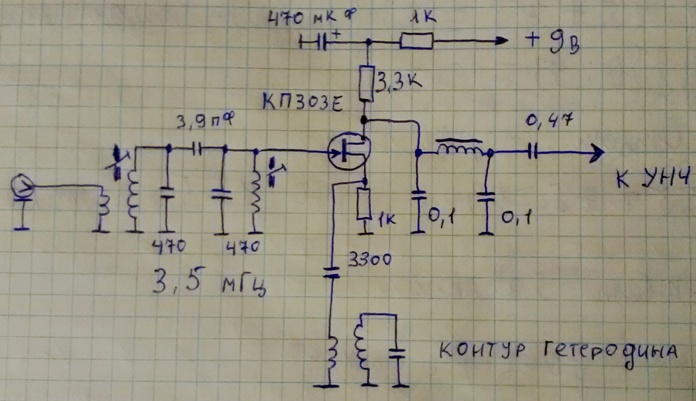 470 мкФ
+
1К
+ 9В
3,3К
КП303Е
3,9пФ
0,47
К УНЧ
470
470
1К
0,1
0,1
3300
3,5 мГц
контур гетеродина